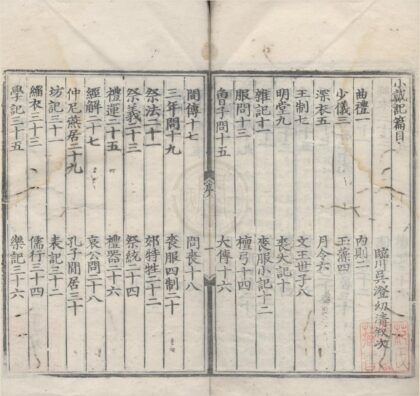 小戴記篇目
臨川吳澄幼清叙次
曲禮一 內則二
少儀三 玉藻四
深衣五 月令六
王制七 文王世子八
明堂九 喪大記十
雜記十一 喪服小記十二
服問十三 檀弓十四
曾子問十五 大傳十六
間傳十七 問喪十八
三年問十九 喪服四制二十
祭法二十一 郊特牲二十二
祭義二十三 祭統二十四
禮運二十五 禮器二十六
經解二十七 哀公問二十八
仲尼燕居二十九 孔子閒居三十
坊記三十一 表記三十二
緇衣三十三 儒行三十四
學記三十五 樂記三十六